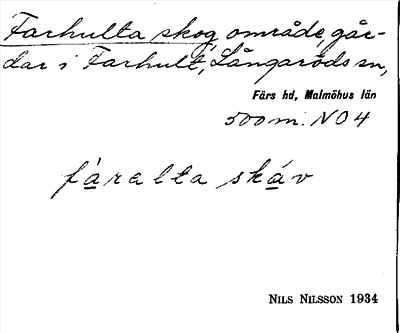 Farhulta skog, område, går-
dar i Farhult, Långaröds sn,
Färs hd, Malmöhus län
500 m. NO 4
fàralta skáv
NILS NILSSON 1934